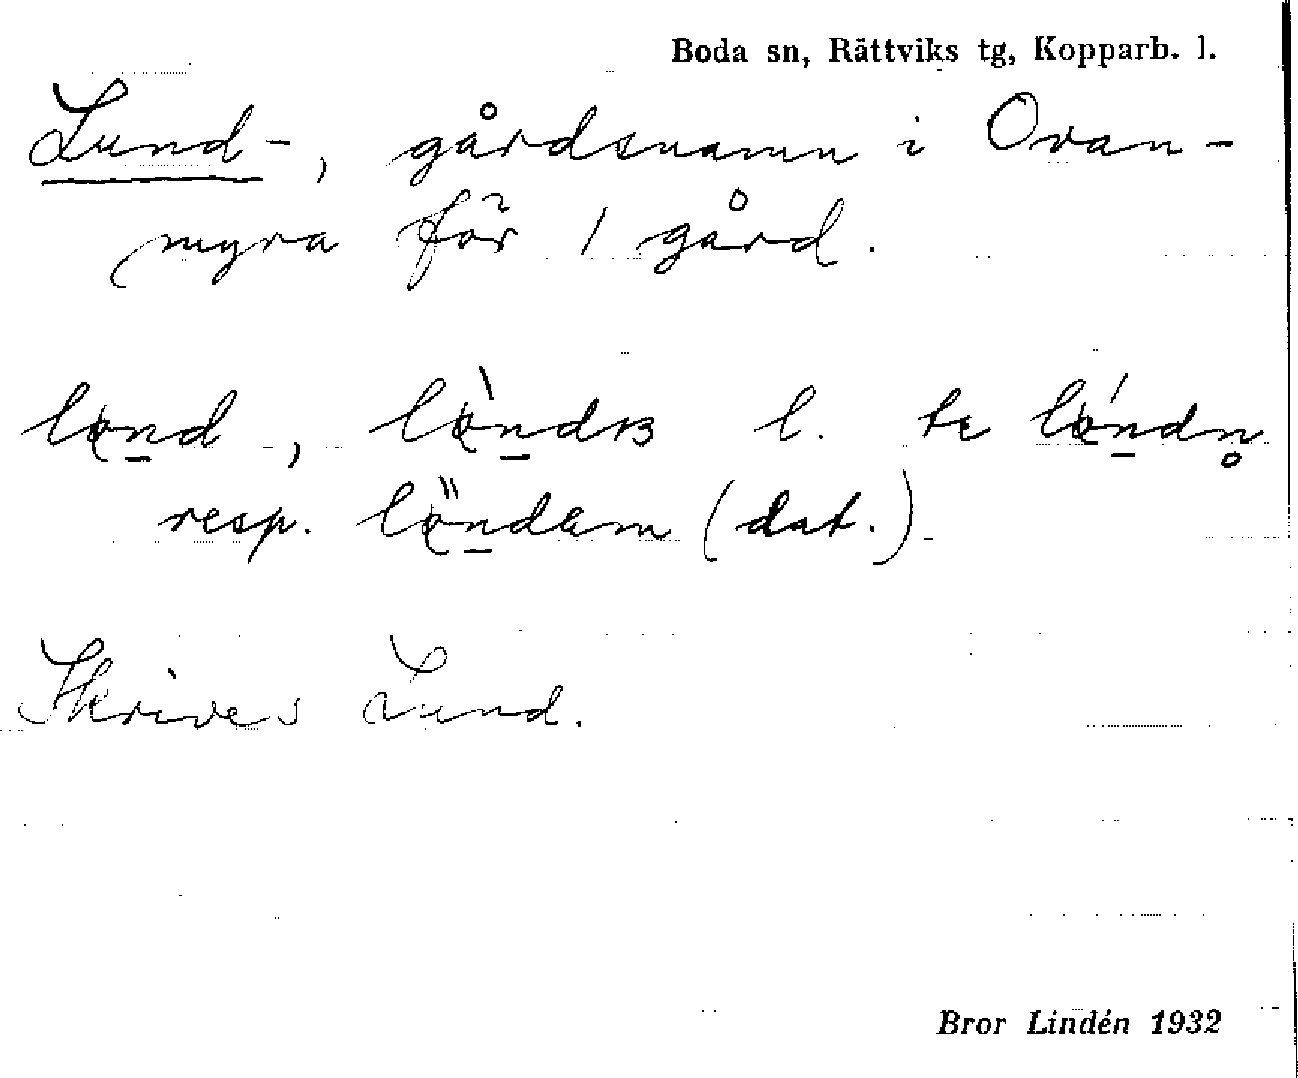 Boda sn, Rättviks tg, Kopparb. l.
Lund-, gårdsnamn i Ovan-
myra för 1 gård.
lond, l. te
resp. (dat.)
Skrives Lund.
Bror Lindén 1932